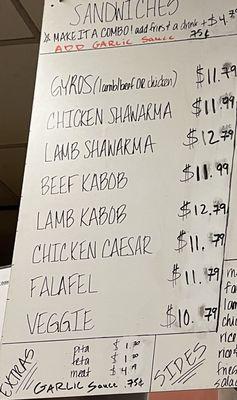 SANDWICHES
☆ MAKE IT A COMBO! add fries + a drink + $4.79
ADD GARLIC SAUCE 75¢
GYROS (lamb/beef OR chicken) $11.79
CHICKEN SHAWARMA $11.99
LAMB SHAWARMA $12.79
BEEF KABOB $11.99
LAMB KABOB $12.79
CHICKEN CAESAR $11.79
FALAFEL $11.79
VEGGIE $10.79
EXTRAS
pita $1.00
feta $1.00
meat $4.
GARLIC SAUCE .75¢
SIDES